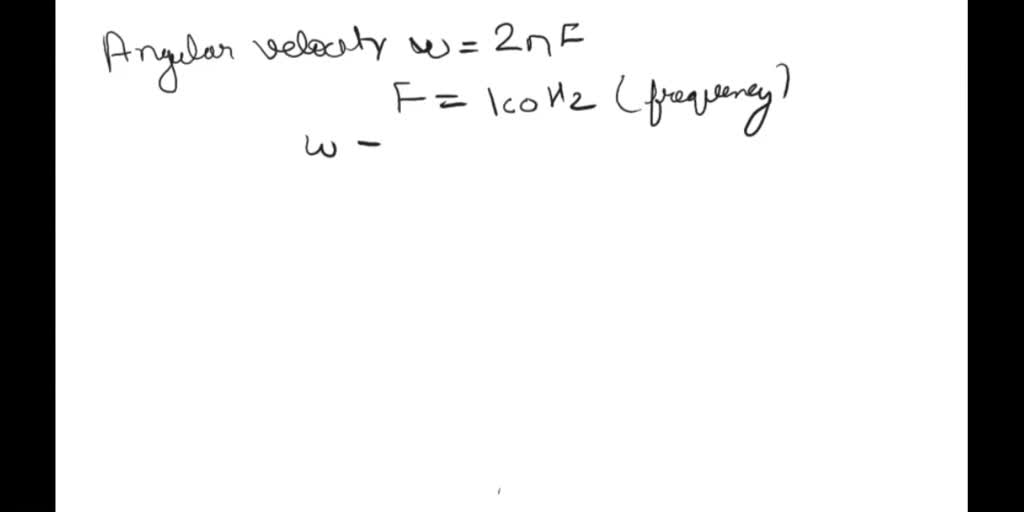 Angular velocity w = 2πF
F = 100 Hz (frequency)
w -